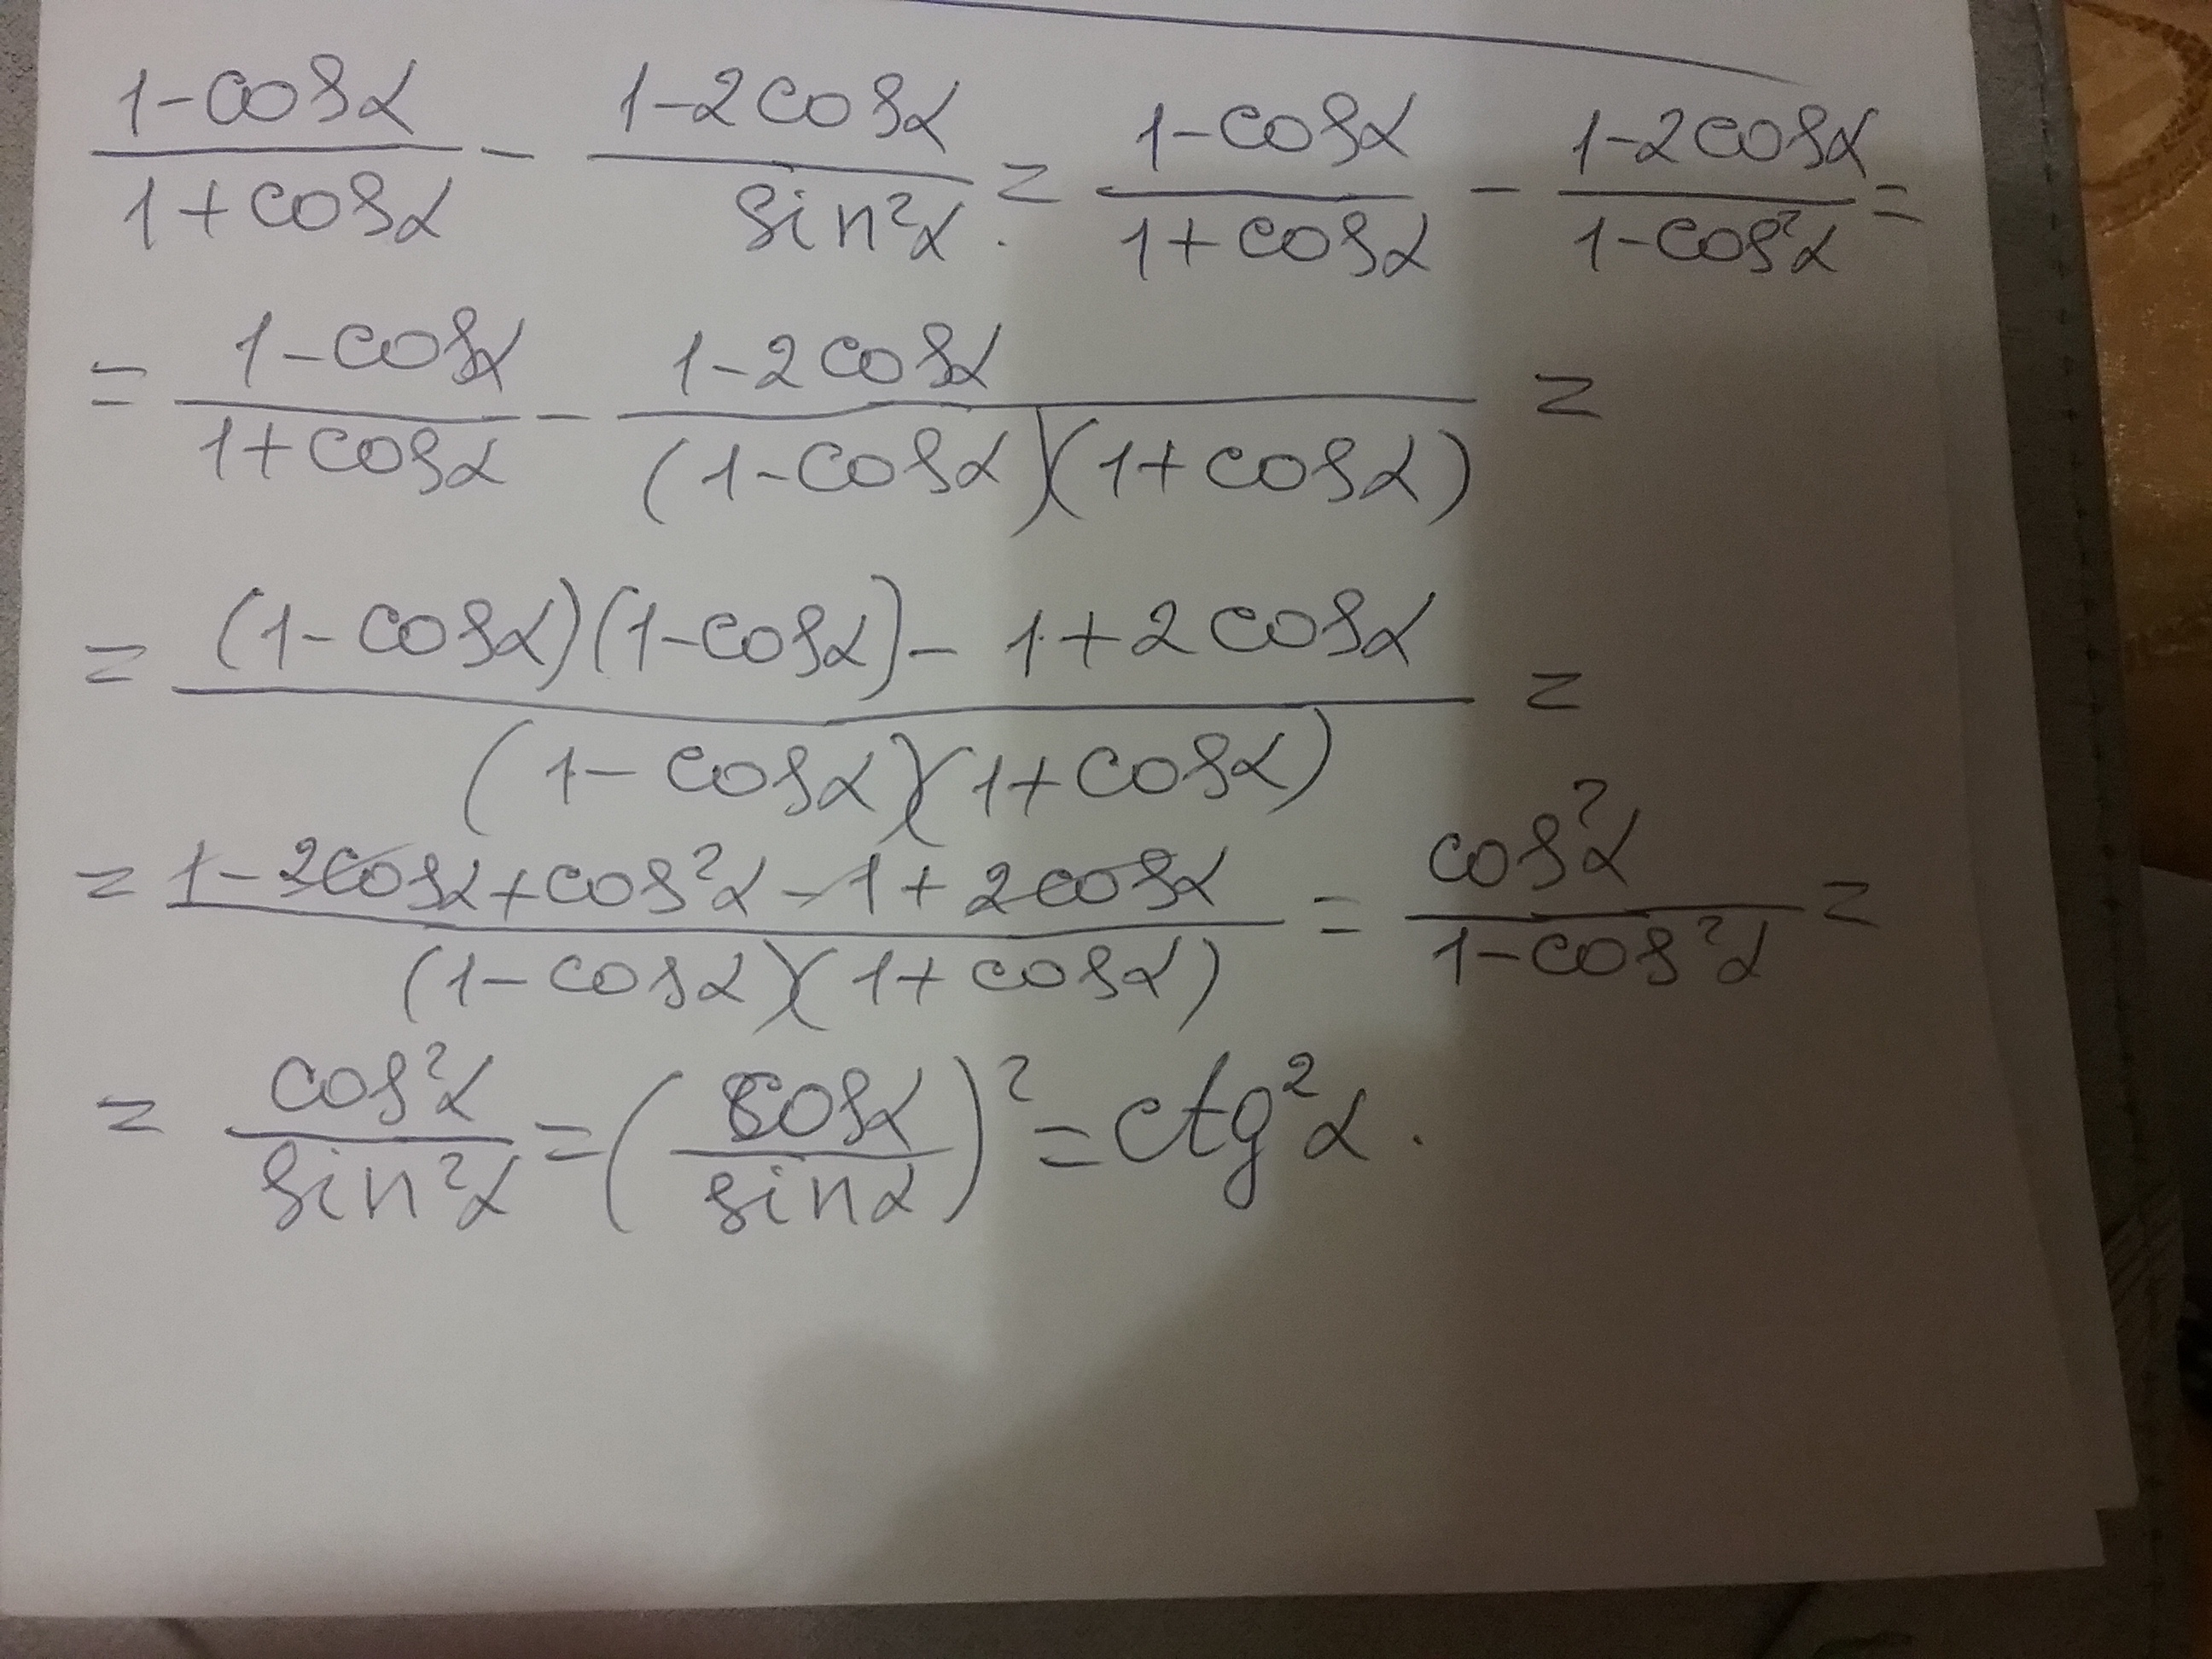 (1-cosα)/(1+cosα) - (1-2cosα)/(sin²α) = (1-cosα)/(1+cosα) - (1-2cosα)/(1-cos²α) =
= (1-cosα)/(1+cosα) - (1-2cosα)/((1-cosα)(1+cosα)) =
= ((1-cosα)(1-cosα) - 1+2cosα)/((1-cosα)(1+cosα)) =
= (1-2cosα+cos²α-1+2cosα)/((1-cosα)(1+cosα)) = (cos²α)/(1-cos²α) =
= (cos²α)/(sin²α) = (cosα/sinα)² = ctg²α.